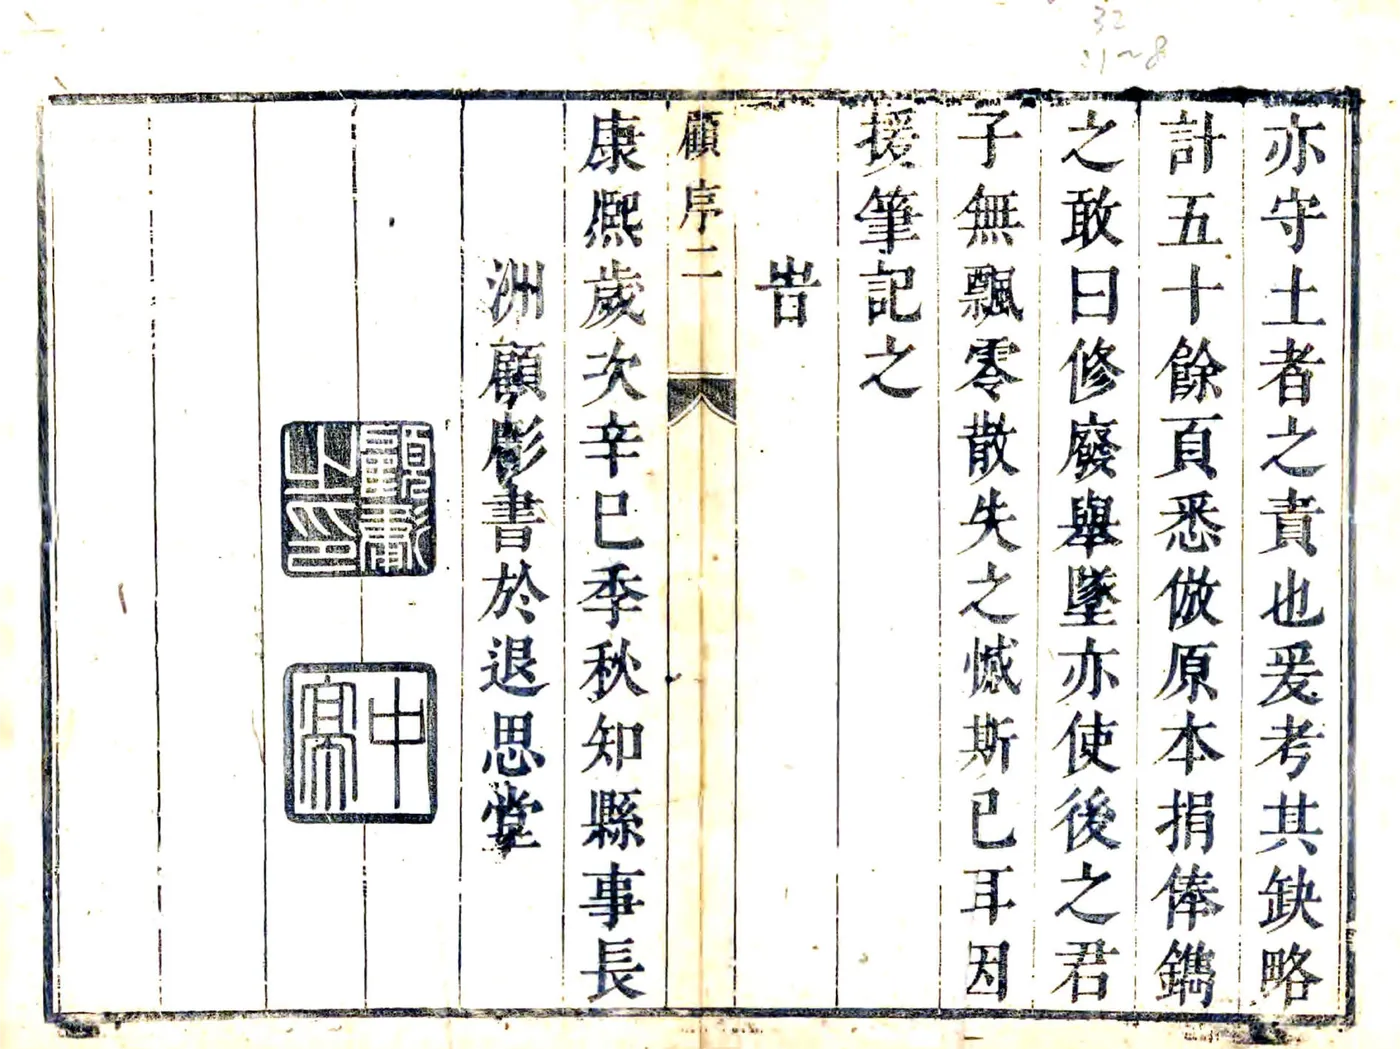 32
11~8
亦守土者之責也爰考其缺略
計五十餘頁悉倣原本捐俸鐫
之敢曰修廢舉墜亦使後之君
子無飄零散失之憾斯已耳因
援筆記之
旹
顧序二
康熙歲次辛巳季秋知縣事長
洲顧彪書於退思堂
中